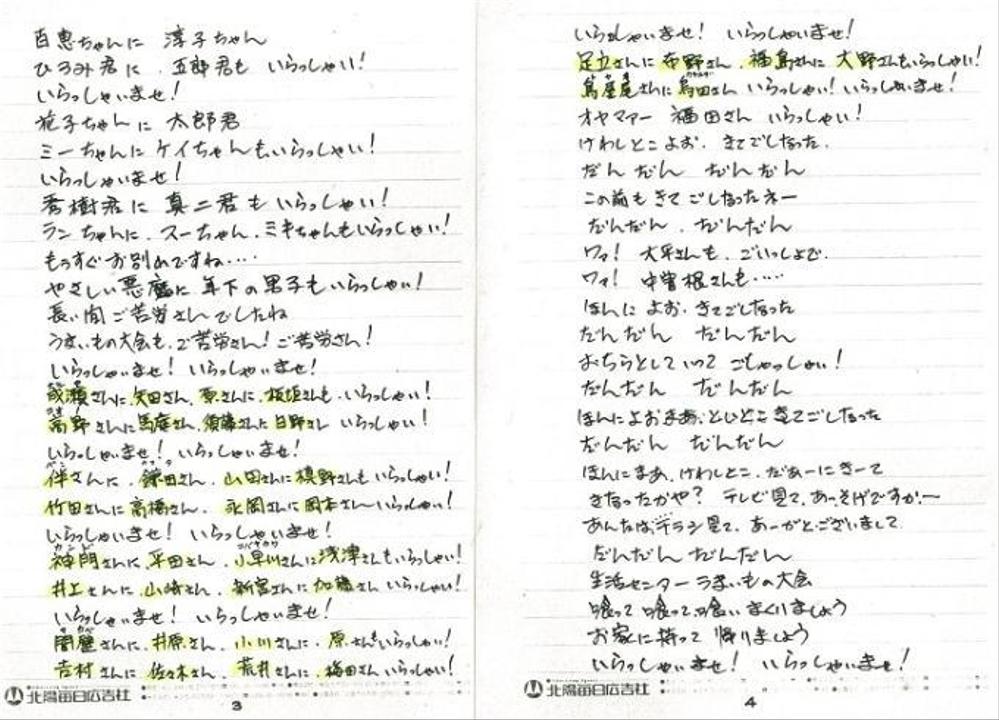 百恵ちゃんに 淳子ちゃん
ひろみ君に、五郎君も いらっしゃい!
いらっしゃいませ!
花子ちゃんに 太郎君
ミーちゃんに ケイちゃんも、いらっしゃい!
いらっしゃいませ!
秀樹君に 真二君も いらっしゃい!
ランちゃんに、スーちゃん、ミキちゃんもいらっしゃい!
もうすぐ お別れですね‥‥
やさしい悪魔に 年下の男子も いらっしゃい!
長い間 ご苦労さんでしたね
うまいもの大会も、ご苦労さん! ご苦労さん!
いらっしゃいませ! いらっしゃいませ!
成瀬さんに、矢田さん、原さんに、板垣さんも、いらっしゃい!
高野さんに 馬庭さん、須藤さんに 日野さん いらっしゃい!
いらっしゃいませ! いらっしゃいませ!
伴さんに、鎌田さん、山田さんに 槙野さんも いらっしゃい!
竹田さんに 高橋さん、永岡さんに 岡本さん〜いらっしゃい!
いらっしゃいませ! いらっしゃいませ!
神門さんに、平田さん、小早川さんに 浅津さんも いらっしゃい!
井上さんに、山崎さん、新宮さんに 加藤さん いらっしゃい!
いらっしゃいませ! いらっしゃいませ!
さんに、井原さん、小川さんに、原さんもいらっしゃい!
吉村さんに 佐々木さん、荒井さんに、梅田さん いらっしゃい!
北陽毎日広告社
3
いらっしゃいませ! いらっしゃいませ!
足立さんに 布野さん、福島さんに 大野さんもいらっしゃい!
さんに 島田さん いらっしゃい! いらっしゃいませ!
オヤマァー 福田さん いらっしゃい!
けわしとこ よお、きてごしなった、
だんだん だんだん
この前も きて ごしなったネー
だんだん、だんだん
ワァ! 大平さんも、ごいっしょで、
ワァ! 中曽根さんも‥‥‥
ほんに よお、きてごしなった
だんだん だんだん
おちらとしていって ごしゃっしゃい!
だんだん だんだん
ほんによおまあ、といとこ きてごしなった
だんだん だんだん
ほんにまあ、けわしとこ、だぁーにきーて
きなったかや? テレビ見て、あっ、そげですか、〜
あんたは、チラシ見て、あーがとございまして
だんだん だんだん
生活センター うまいもの大会
喰って 喰って、喰いまくりましょう
お家に持って 帰りましょう
いらっしゃいませ! いらっしゃいませ!
北陽毎日広告社
4